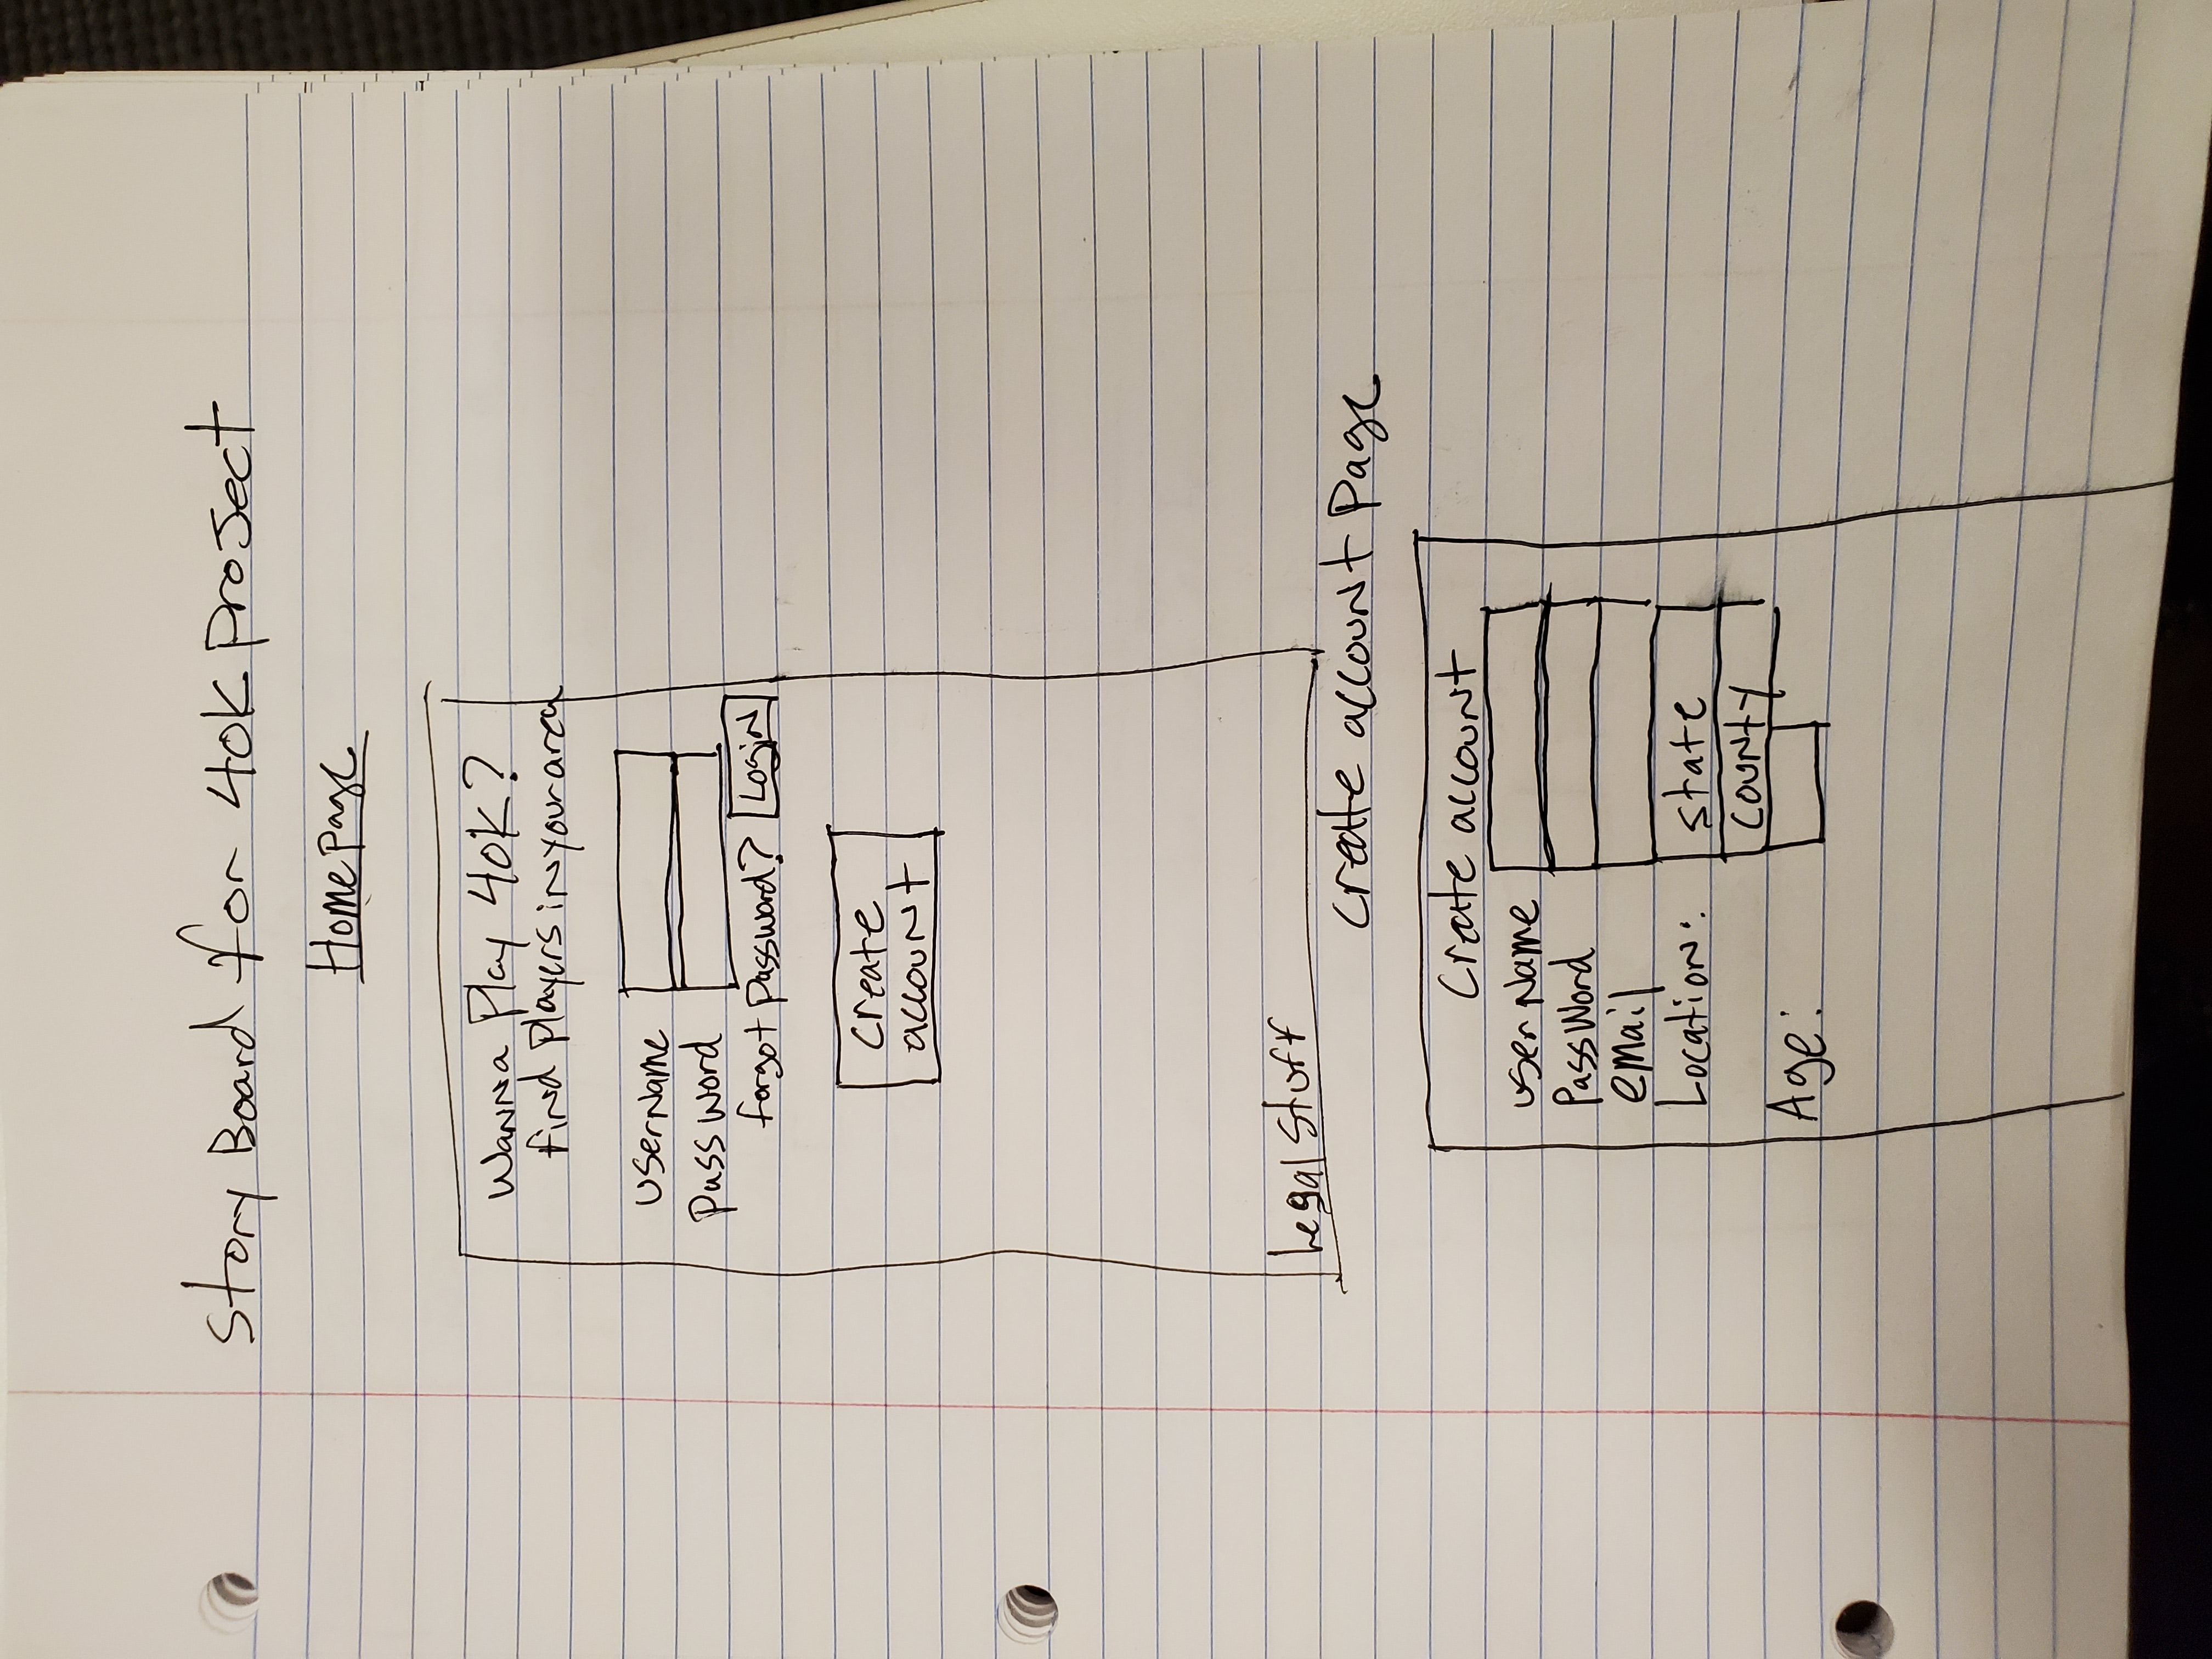 Story Board for 40K Project
Home Page
Wanna Play 40K?
find Players in your area
UserName
PassWord
forgot Password? Login
Create
account
Legal Stuff
Create account Page
Create account
User Name
PassWord
email
Location: state
county
Age: